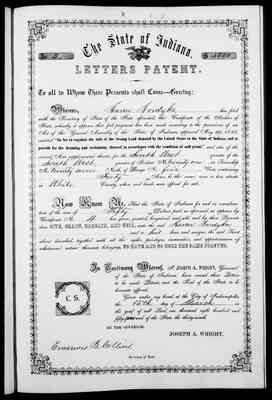 The State of Indiana.
LETTERS PATENT.
To all to Whom These Presents shall Come—Greeting:
Whereas, Aaron Nordyke has filed
with the Secretary of State of the State aforesaid, her Certificate of the Auditor of
State, whereby it appears that full payment has been made according to the provisions of an
Act of the General Assembly of the State of Indiana, approved May 29, 1852,
entitled "An Act to regulate the Sale of the Swamp Land donated by the United States to the State of Indiana, and to
provide for the draining and reclaiming thereof in accordance with the condition of said grant," and also of the
several Acts supplementary thereto, for the South West quarter of the
South West quarter of Section No. twenty two in Township
No. twenty seven North, of Range No. five West containing
Forty Acres
in White County, when said lands are offered for sale.
Now Know Ye, That the State of Indiana, for and in consideration
of the sum of Fifty Dollars paid as aforesaid, as appears by
Certificate No. has granted, bargained and sold, and by these Presents
does GIVE, GRANT, BARGAIN, AND SELL, unto the said Aaron Nordyke
and to heirs and assigns, the said Tract
above described, together with all the rights, privileges, immunities, and appurtenances of
whatsoever nature thereunto belonging, TO HAVE AND TO HOLD THE SAME FOREVER.
In Testimony Whereof, I, JOSEPH A. WRIGHT, Governor
of the State of Indiana, have caused these Letters
to be made Patent, and the Seal of the State to be
hereunto affixed.
Given under my hand at the City of Indianapolis,
this 15th day of March in
the year of our Lord, one thousand eight hundred and
fifty and of the State the thirty
C. S.
BY THE GOVERNOR:
JOSEPH A. WRIGHT.
Erasmus B. Collins
Secretary of State.